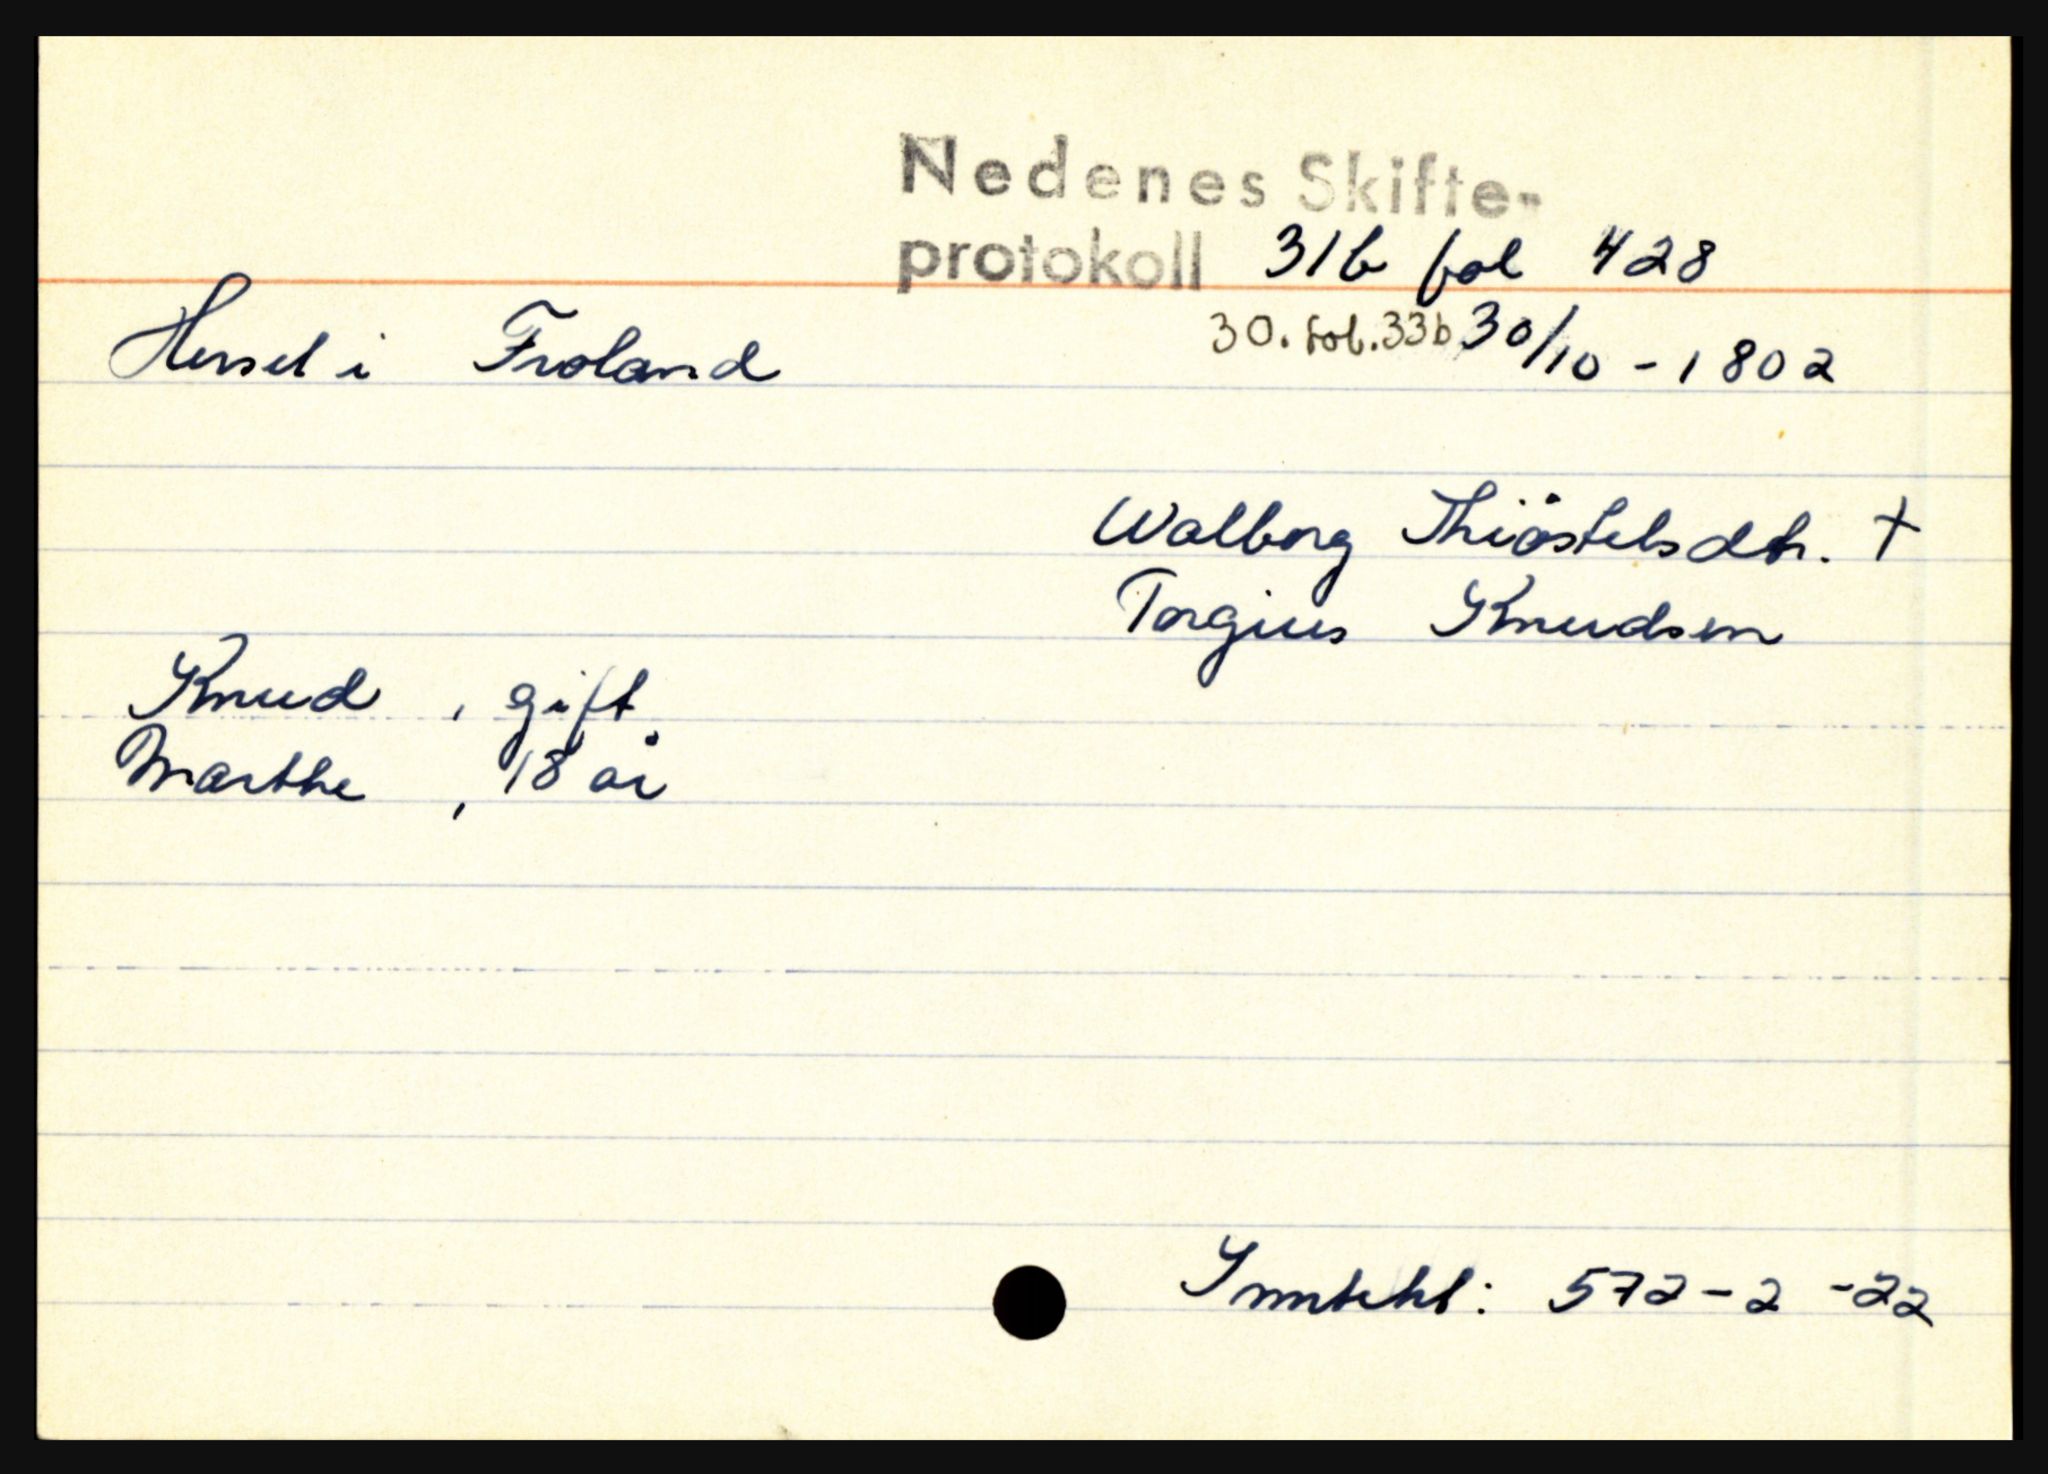 Nedenes Skifte-
protokoll 31b fol 428
30. fol. 33b 30/10 - 1802
Hersel i Froland
Walborg Thiøstelsdtr. +
Torgius Knudsen
Knud , gift
Marthe , 18 år
Inntekt: 572-2-22